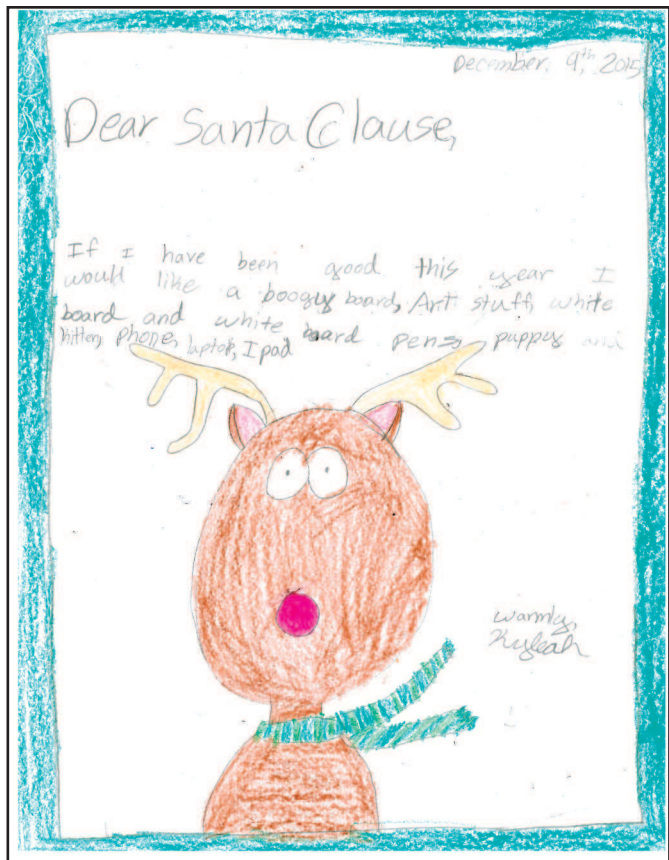 December, 9th, 2015
Dear Santa Clause,
If I have been good this year I
would like a boogy board, Art stuff, white
board and white board pens, puppy and
kitten, phone, laptop, Ipad
warmly,
Kyleah